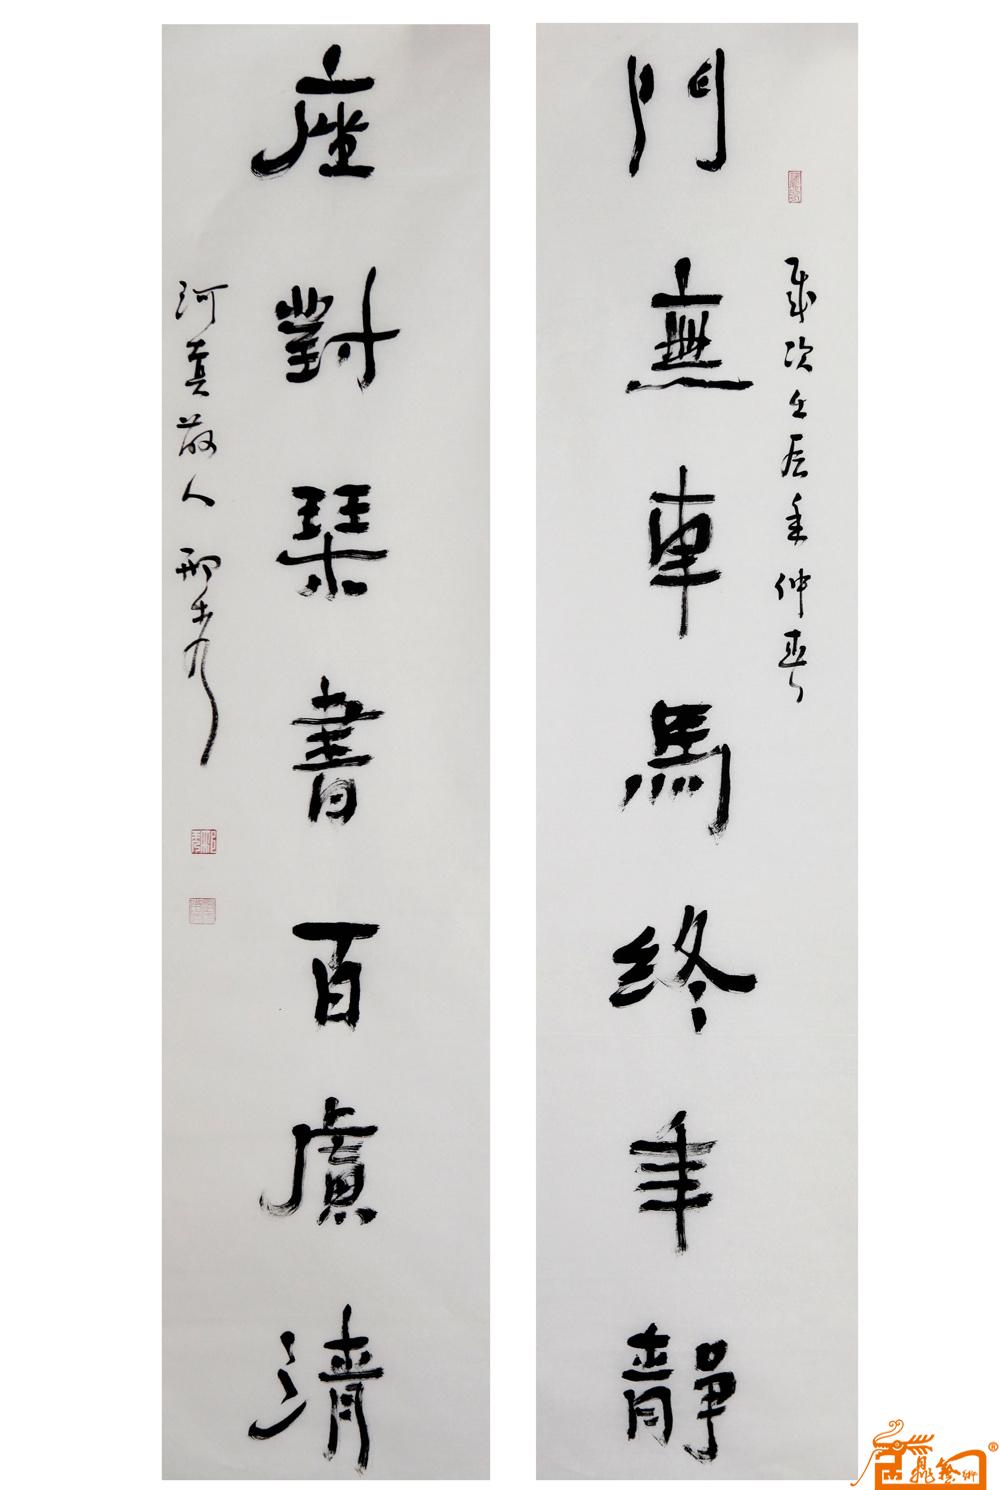 門無車馬終年靜
歲次壬辰年仲夏
座對琴書百慮清
河真散人